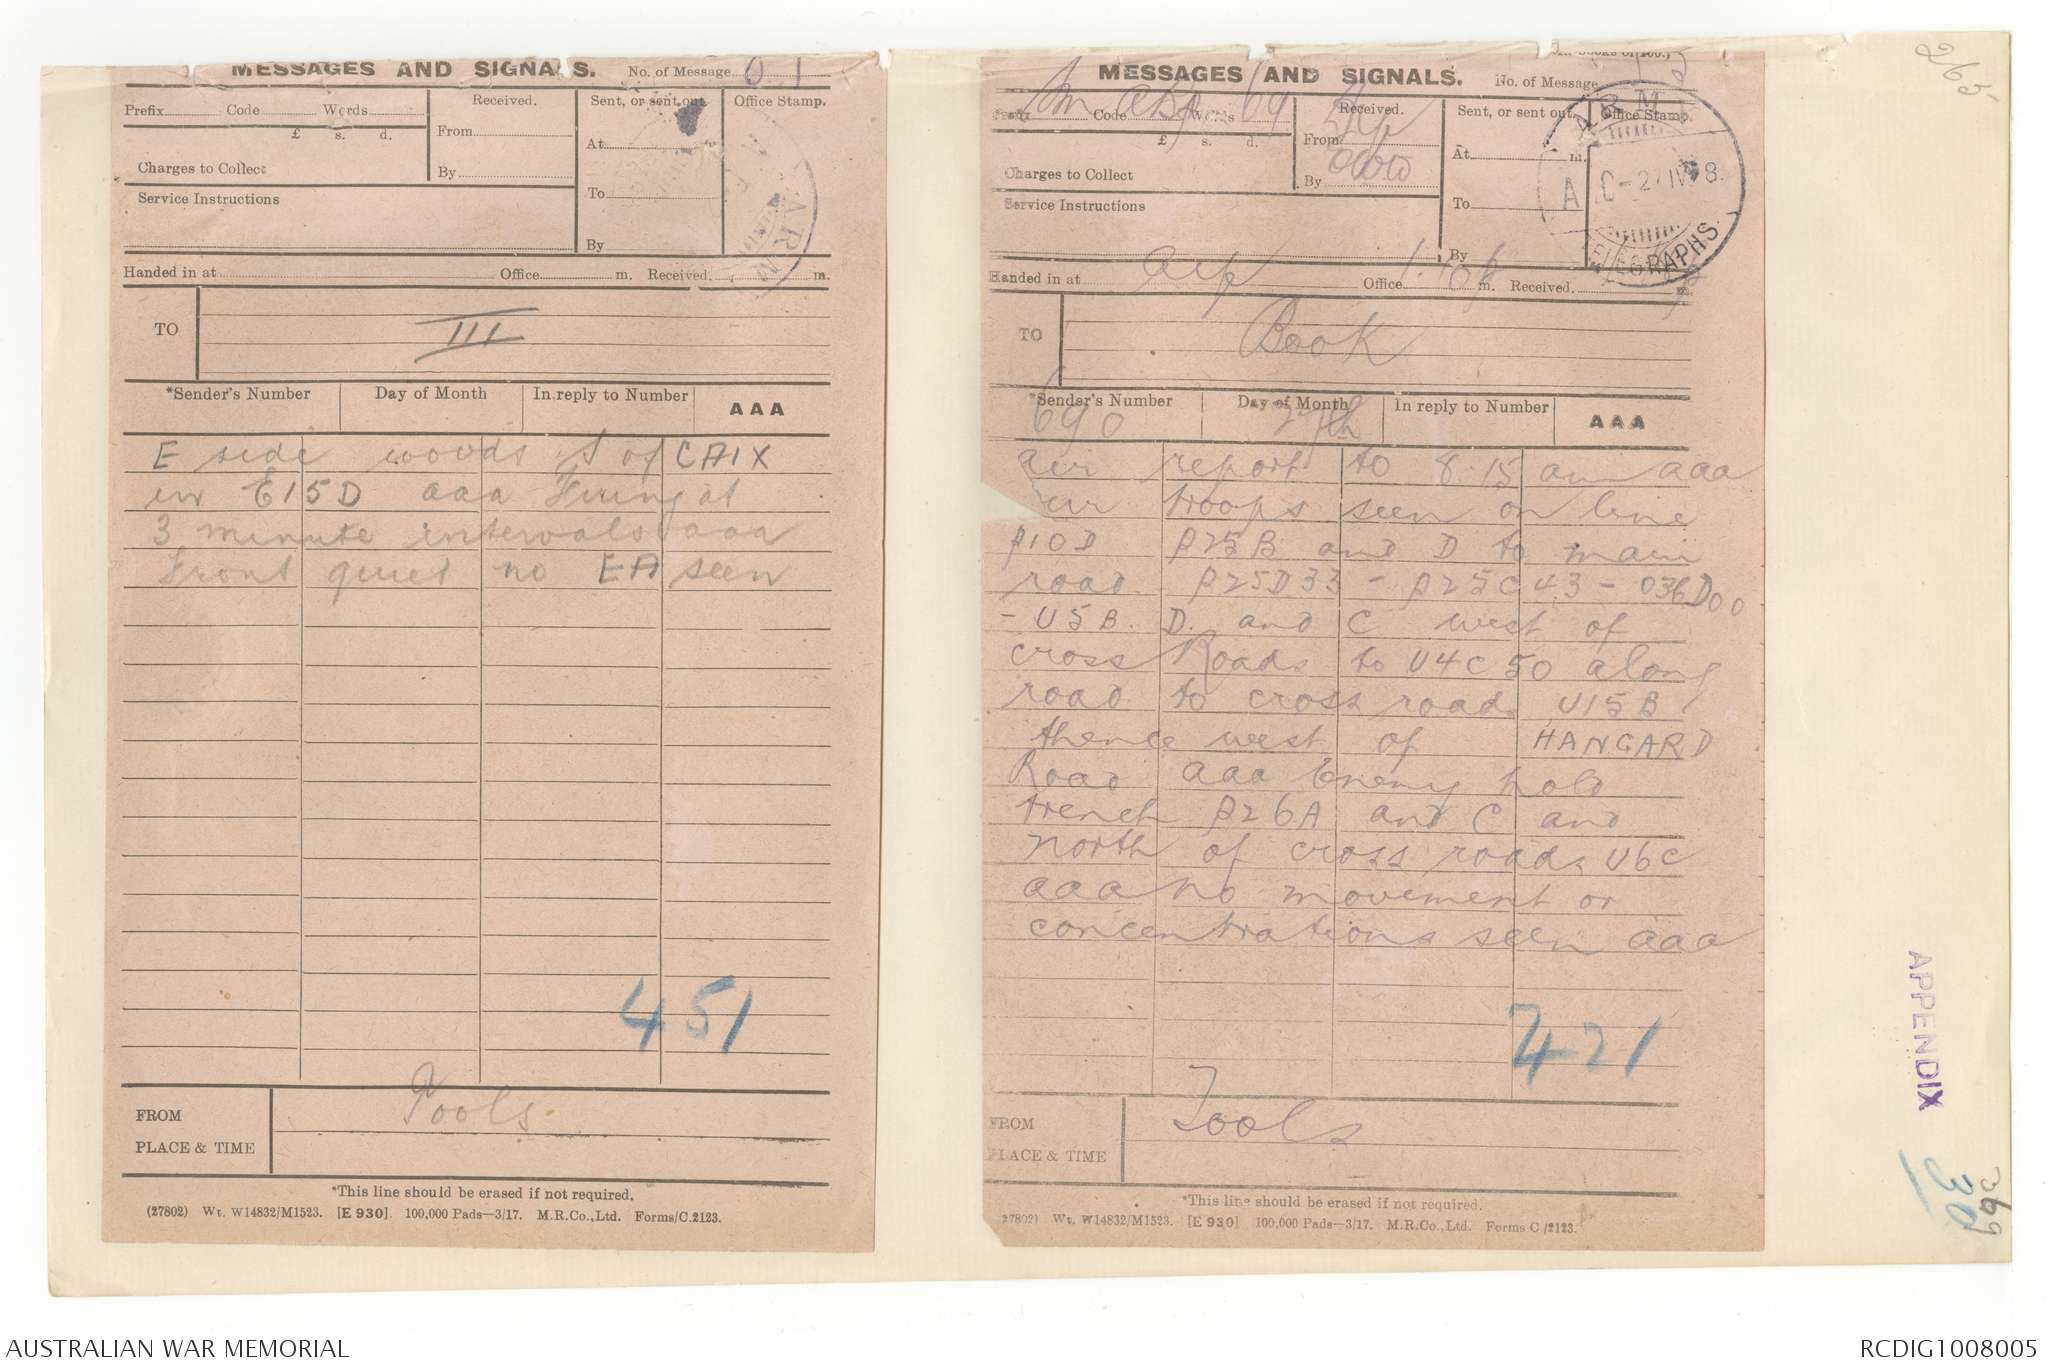 MESSAGES AND SIGNALS. No. of Message
Prefix Code Words
£ s. d.
Charges to Collect
Service Instructions
Received.
From
By
Sent, or sent out
At
To
By
Office Stamp.
ARM
Handed in at Office m. Received. m.
TO III
*Sender's Number Day of Month In reply to Number AAA
E side woods S of CAIX
in E15D aaa Firing at
3 minute intervals aaa
Front quiet no EA seen
451
FROM Tools
PLACE & TIME
*This line should be erased if not required.
(27802) Wt. W14832/M1523. [E 930]. 100,000 Pads—3/17. M.R.Co.,Ltd. Forms/C.2123.
MESSAGES AND SIGNALS. No. of Message
Prefix Sm Code Words 69
£ s. d.
Charges to Collect
Service Instructions
Received.
From
By
Sent, or sent out
At m.
To
By
Office Stamp.
ARMY
TELEGRAPHS
Handed in at Office m. Received. m.
TO Book
*Sender's Number Day of Month In reply to Number AAA
690 27th
air report to 8.15 am aaa
troops seen on line
P10D P25B and D to main
road P25D33 - P25C43 - O36D00
- U5B. D. and C west of
cross Roads to U4C50 along
road to cross roads U15B
thence west of HANGARD
Road aaa Enemy hold
trench P26A and C and
north of cross roads U6C
aaa no movement or
concentrations seen aaa
421
FROM Tools
PLACE & TIME
*This line should be erased if not required.
27802) Wt. W14832/M1523. [E 930] 100,000 Pads—3/17. M.R.Co.,Ltd. Forms C/2123.
265
APPENDIX
30
369
AUSTRALIAN WAR MEMORIAL
RCDIG1008005